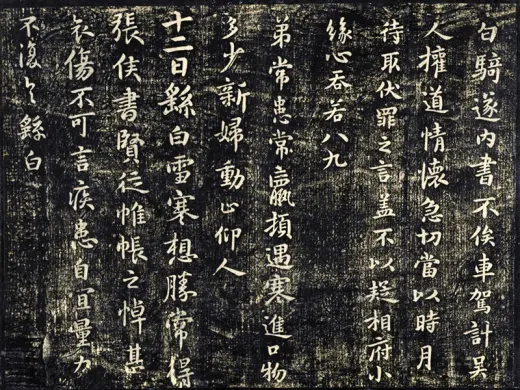 白騎遂內書不俟車駕計吳
人權道情懷急切當以時月
待取伏罪之言蓋不以疑相府小
緣心吞若八九
弟常患常羸頓遇寒進口物
多少新婦動止仰人
十二日繇白雪寒想勝常得
張侯書賢從帷帳之悼甚
哀傷不可言疾患自宜量力
不復々繇白